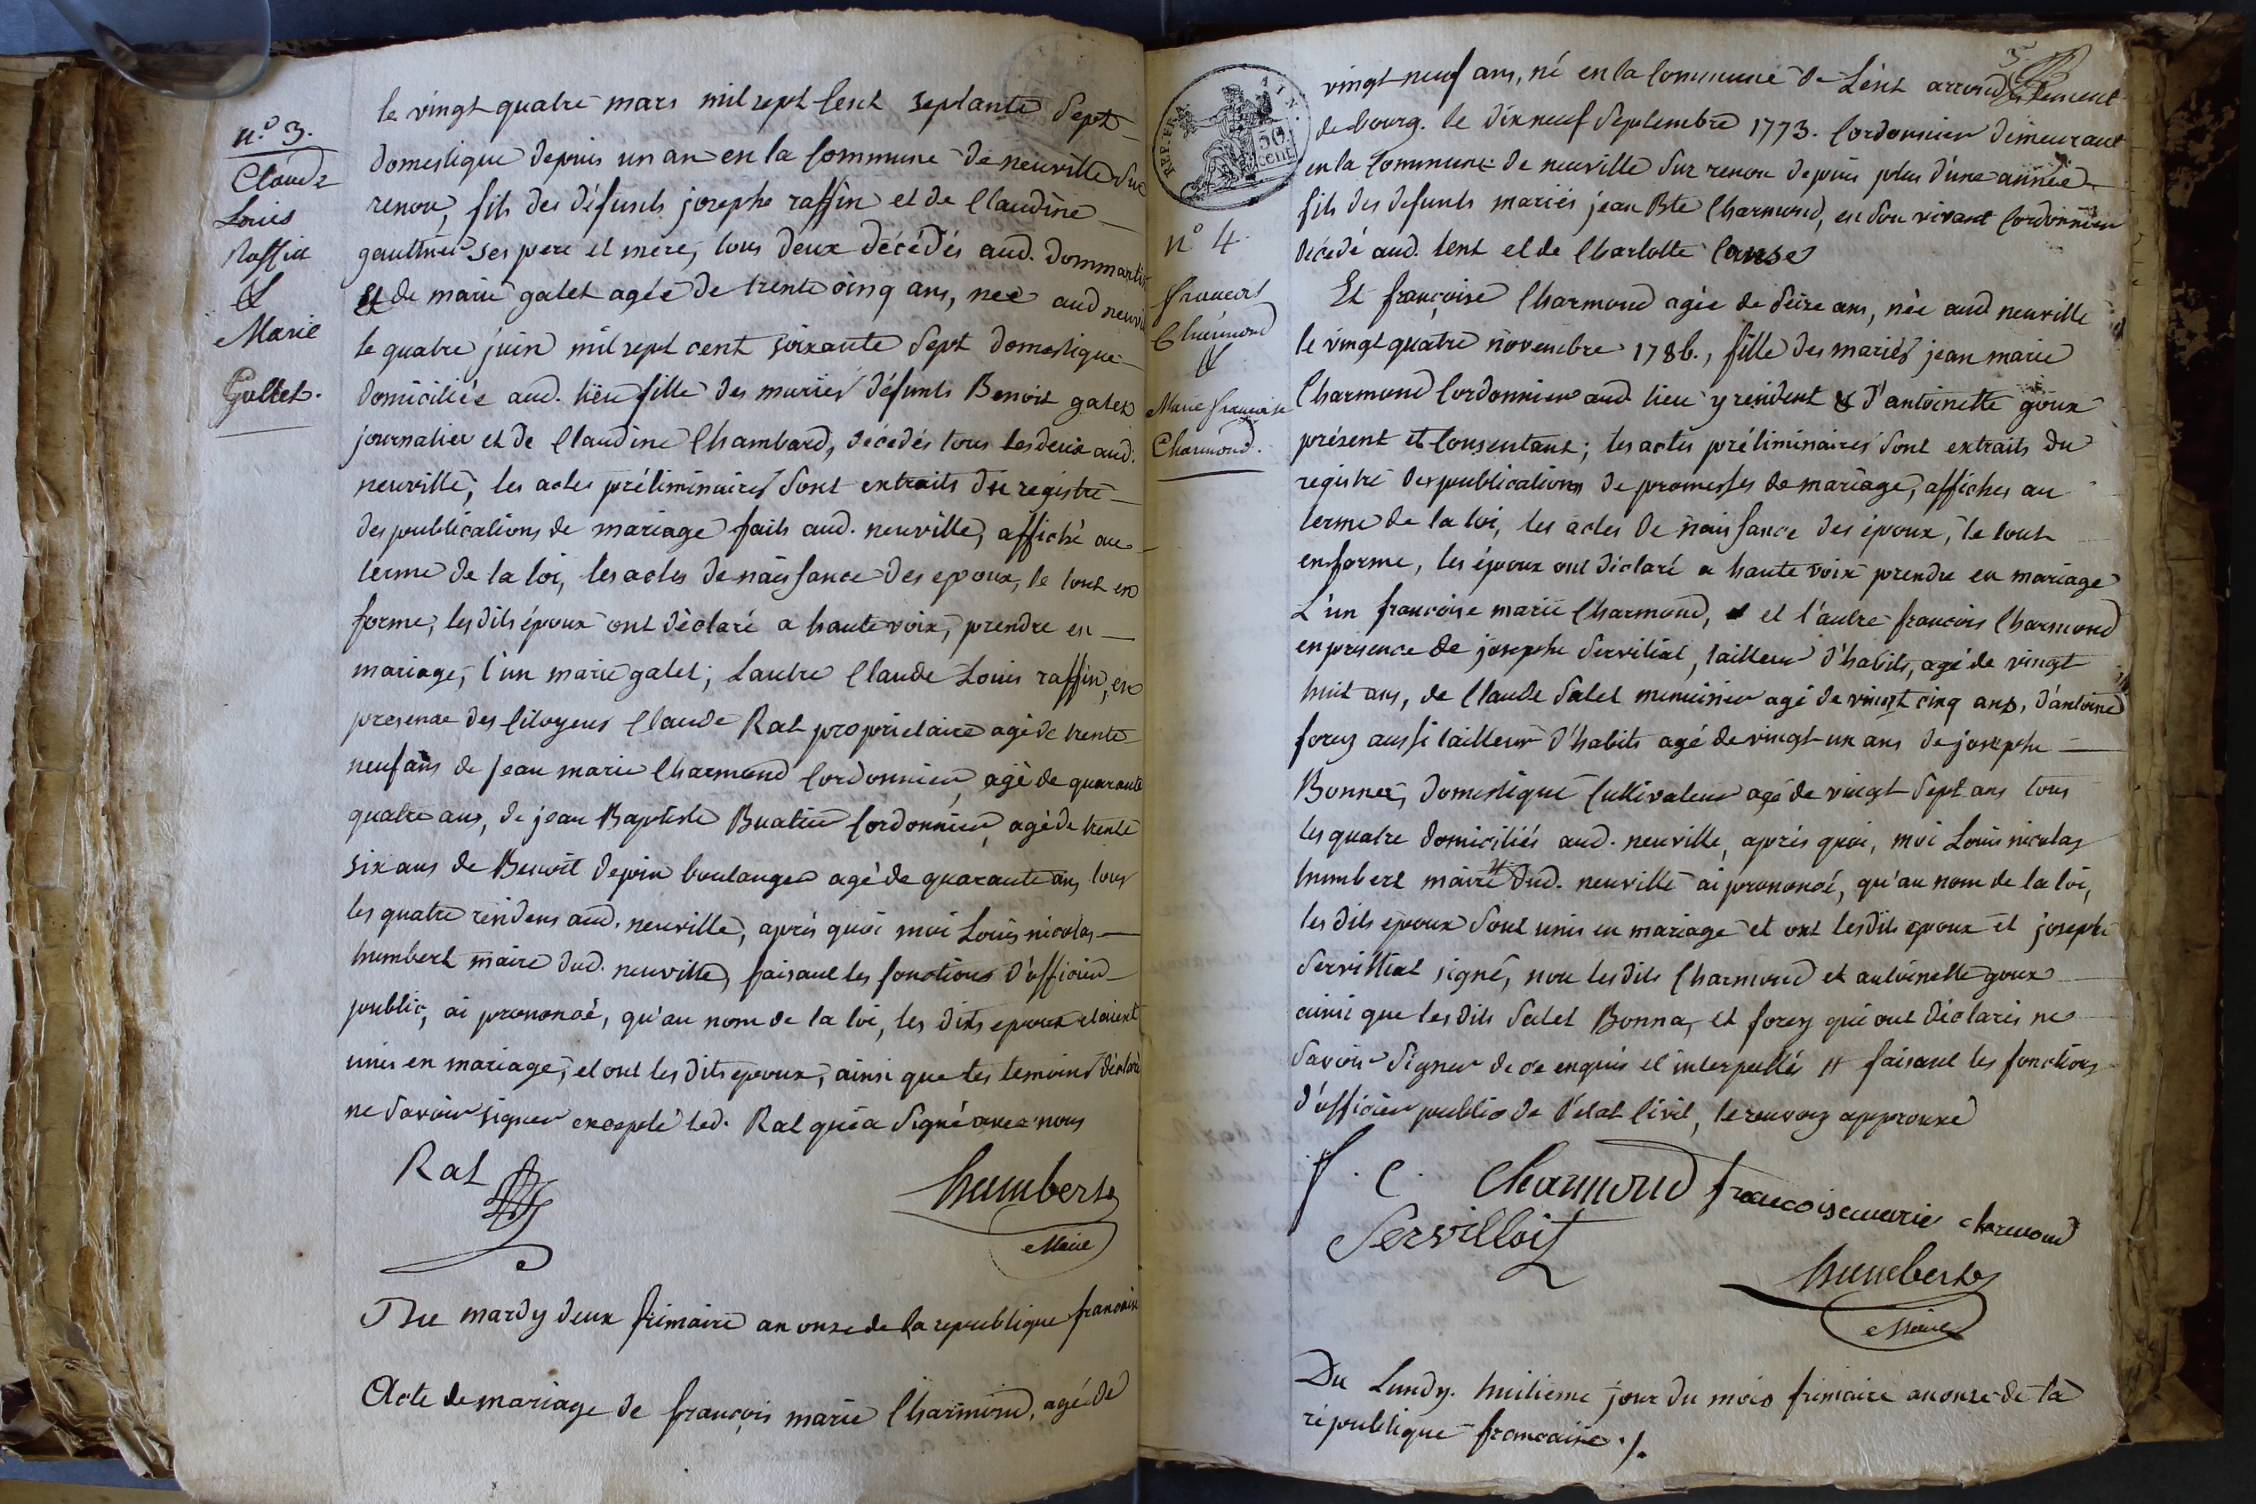 n.o 3.
Claude
Louis
Raffin
&
Marie
Gallet.
le vingt quatre mars mil sept cent septante sept
domestique depuis un an en la commune de neuville sur
renon, fils des défunts josephe raffin et de Claudine
gauthier ses pere et mere, tous deux décédés aud. dommartin
Et de marie galet agée de trente cinq ans, née aud neuville
le quatre juin mil sept cent soixante sept domestique
domiciliée aud. lieu fille des mariés défunts Benoit galet
journalier et de Claudine Chambard, décedés tous les deux aud.
neuville, les actes préliminaires sont extraits du registre
des publications de mariage faits aud. neuville, affiché au
terme de la loi, les actes de naissance des epoux, le tout en
forme, les dits époux ont déclaré a haute voix, prendre en
mariage, l'un marie galet; Lautre Claude Louis raffin, en
presence des citoyens Claude Rat proprietaire agé de trente
neuf ans de jean marie Charmond Cordonnier, agé de quarante
quatre ans, de jean Baptiste Buatier Cordonnier, agé de trente
six ans de Benoit depin boulanger agé de quarante ans, tous
les quatre residens aud. neuville, après quoi moi Louis nicolas
humbert maire dud. neuville, faisant les fonctions d'officier
public, ai prononcé, qu'au nom de la loi, les dits epoux etoient
unis en mariage, et ont les dits epoux, ainsi que les temoins déclaré
ne savoir signer excepté led. Rat qui a signé avec nous
Rat humbert
Maire
Du mardy deux frimaire an onze de la republique francaise
Acte de mariage de françois marie Charmond, agé de
3
REP. FRA.
50
cent
n.o 4.
francois
Charmond
&
Marie francoise
Charmond.
vingt neuf ans, né en la commune de Lent arrondissement
de bourg. le dix neuf septembre 1773. Cordonnier demeurant
en la commune de neuville sur renon depuis plus d'une année
fils des defunts mariés jean Bte Charmond, en son vivant Cordonnier
décédé aud. Lent et de Charlotte
Et françoise Charmond agée de seize ans, née aud neuville
le vingt quatre novembre 1786., fille des mariés jean marie
Charmond Cordonnier aud. lieu y resident & d'antoinette goux
présent et consentant; les actes préliminaires sont extraits du
registre des publications de promesses de mariage, affiches au
terme de la loi, les actes de naissance des époux, le tout
en forme, les époux ont déclaré a haute voix prendre en mariage
L'un françoise marie Charmond, et l'autre françois Charmond
en presence de josephe Servilliat, tailleur d'habits, agé de vingt
huit ans, de Claude Salet menuisier agé de vingt cinq ans, d'antoine
forey aussi tailleur d'habits agé de vingt un ans de josephe
Bonner, domestique Cultivateur agé de vingt sept ans tous
les quatre domiciliés aud. neuville, après quoi, moi Louis nicolas
humbert maire # dud. neuville ai prononcé, qu'au nom de la loi,
les dits epoux sont unis en mariage et ont les dits epoux et joseph
Servilliat signé, non les dits Charmond et antoinette goux
ainsi que les dits Salet Bonna, et forey qui ont déclarés ne
savoir signer de ce enquis et interpellés # faisant les fonctions
d'officier public de l'etat Civil, le renvoy approuvé
f. C. Charmond francoise marie charmond
Servilloit
humbert
Maire
Du Lundy. huitieme jour du mois frimaire an onze de la
république francaise ./.